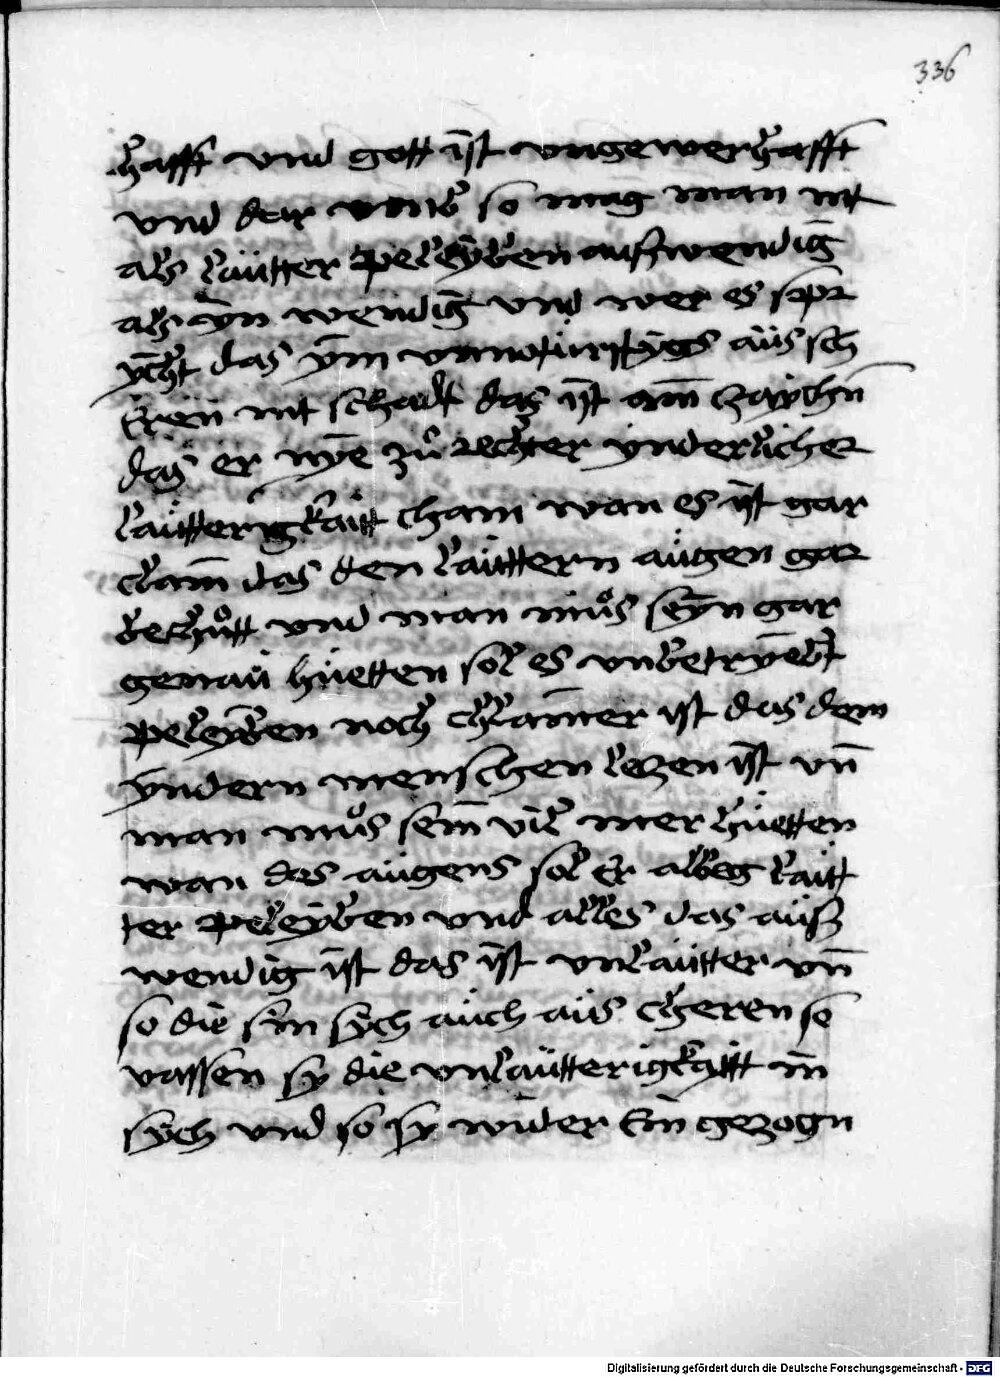 336
hafft vnd gott ist vngewerhafft
vnd dar vmb so mag man nit
als lautter peleyben auswendig
als yn wendig vnd wer es spr
ycht das ym vnnotürftygs aus ch
eren nit schadt das ist ain zaychn
das er nye zů rechter ynderlicher
lautterigkaitt cham wan es ist gar
clain das den lauttern augen gar
we thůtt vnd man můs seyn gar
genau hüetten sol es vnbetryebt
peleyben noch chlainer ist das dem
yndern menschen leczen ist vn̄
man můs sein vil mer hüetten
wan das augens sol er albeg laut
ter peleyben vnd alles das aus
wendig ist das ist vnlautter vn̄
so die sin sych auch aus cheren so
vassen sy die vnlautterigkaitt in
sych vnd so sy wider ein gezogn
Digitalisierung gefördert durch die Deutsche Forschungsgemeinschaft - DFG